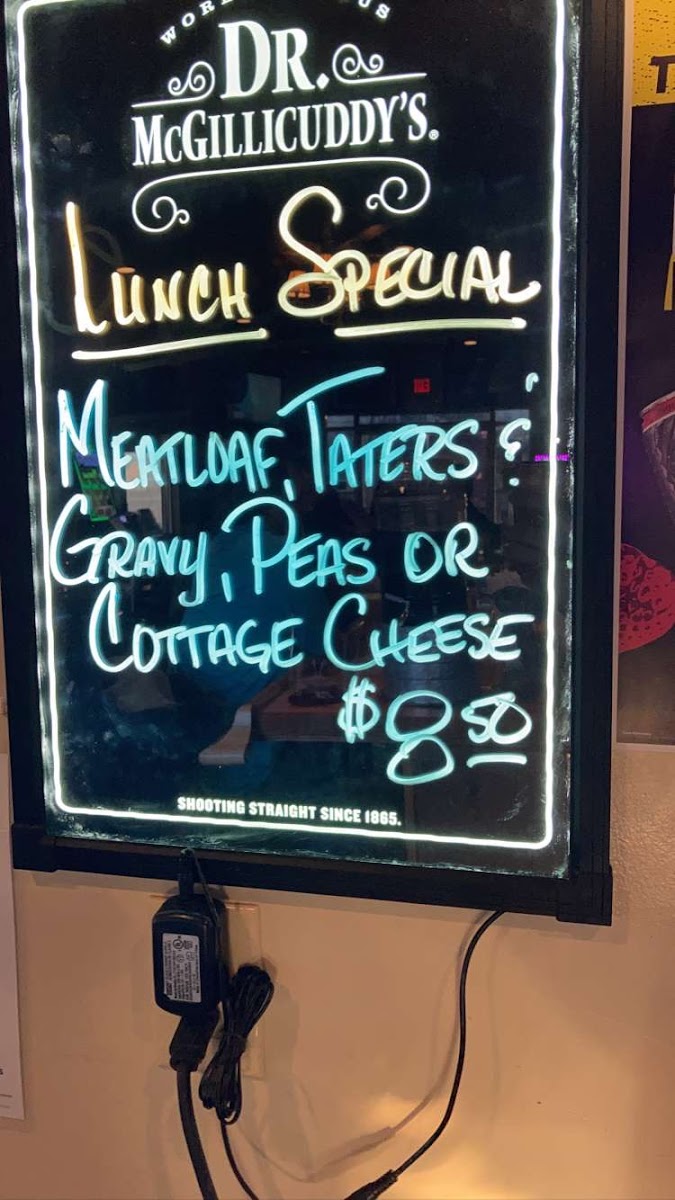 DR.
McGILLICUDDY'S®
LUNCH SPECIAL
MEATLOAF, TATERS &
GRAVY, PEAS OR
COTTAGE CHEESE
$8 50
SHOOTING STRAIGHT SINCE 1865.